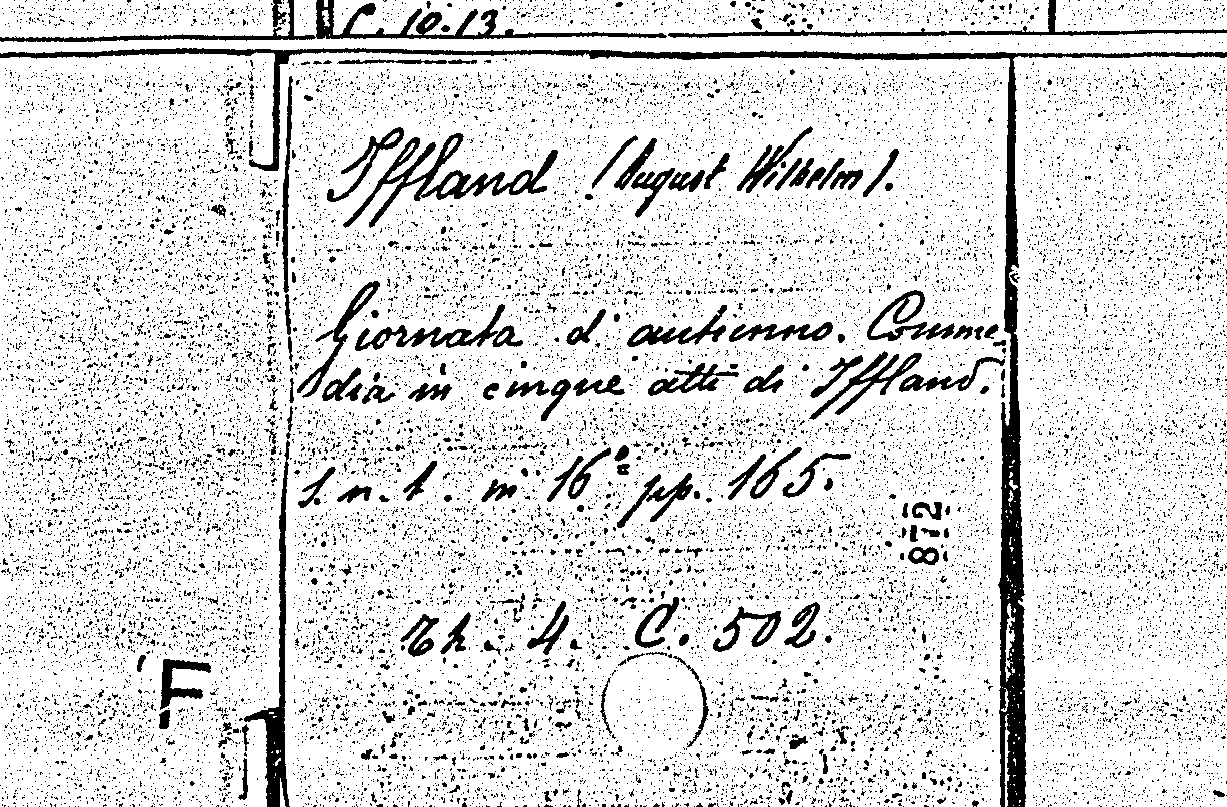 C. 10.13.
Iffland (August Wilhelm).
Giornata d'autunno. Comme-
dia in cinque atti di Iffland.
S. n. t. in 16º pp. 165.
872
Th. 4. C. 502.
F